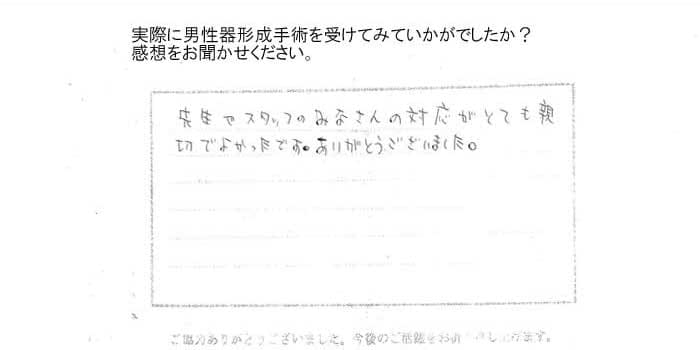 実際に男性器形成手術を受けてみていかがでしたか？
感想をお聞かせください。
先生やスタッフのみなさんの対応がとても親
切でよかったです。ありがとうございました。
ご協力ありがとうございました。今後のご活躍をお